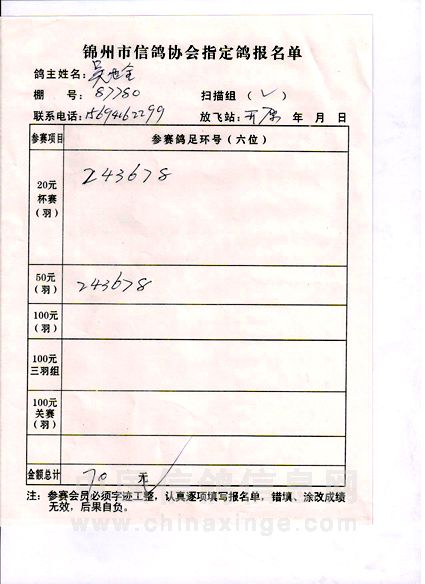 锦州市信鸽协会指定鸽报名单
鸽主姓名：吴
棚 号：87780 扫描组（✓）
联系电话：15694162299 放飞站： 年 月 日
参赛项目 参赛鸽足环号（六位）
20元
杯赛
（羽） 243678
50元
（羽） 243678
100元
（羽）
100元
三羽组
100元
关赛
（羽）
金额总计 70 元
注：参赛会员必须字迹工整，认真逐项填写报名单，错填、涂改成绩
无效，后果自负。
中国信鸽信息网
www.chinaxinge.com